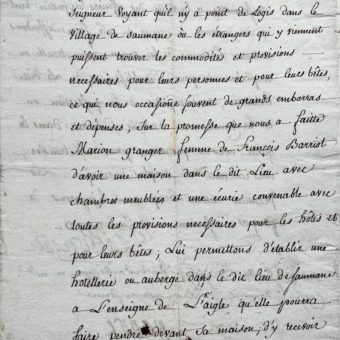 Seigneur Voyant qu'il n'y a point de Logis dans le
Village de saumane où les étrangers qui y viennent
puissent trouver les commodités et provisions
necessaires pour leurs personnes et pour leurs bêtes,
ce qui nous occasione souvent de grands embarras
et depenses; sur la promesse que nous a faitte
Marion granger femme de François Barriot
d'avoir une maison dans le dit Lieu avec
chambres meublées et une écurie convenable avec
toutes les provisions necessaires pour les hôtes et
pour leurs bêtes, Lui permettons d'établir une
hotellerie ou auberge dans le dit lieu de saumane
a L'enseigne de L'aigle qu'elle pourra
faire pendre devant sa maison, d'y recevoir